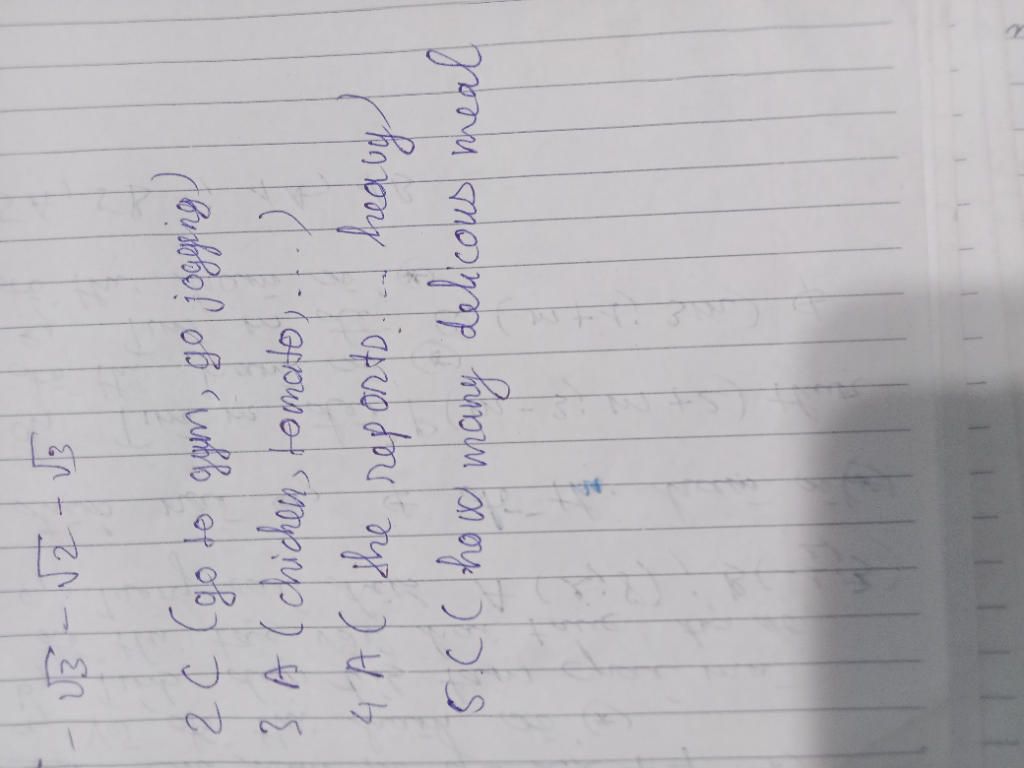 - √3 - √2 - √3
2 C (go to gym, go jogging)
3 A (chicken, tomato, ...)
4 A ( the reporto ... heavy)
5 C ( how many delicous meal